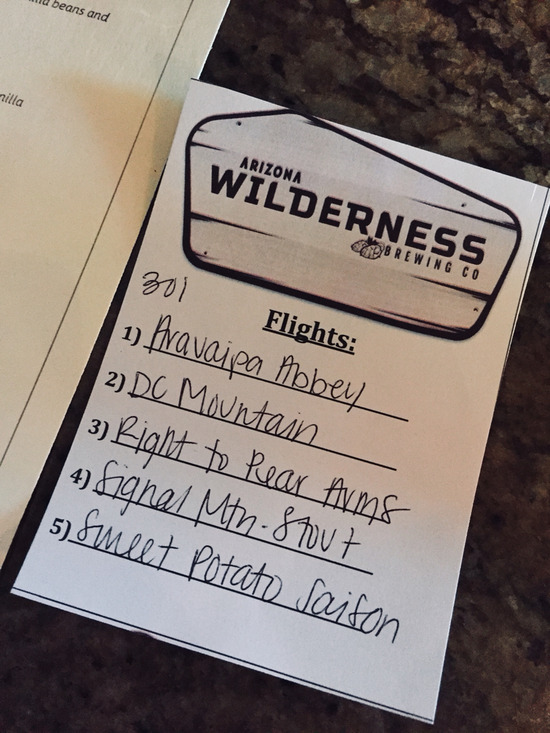 beans and
nilla
ARIZONA
WILDERNESS
BREWING CO
301
Flights:
1) Aravaipa Abbey
2) DC Mountain
3) Right to Rear Arms
4) Signal Mtn. Stout
5) Sweet Potato Saison